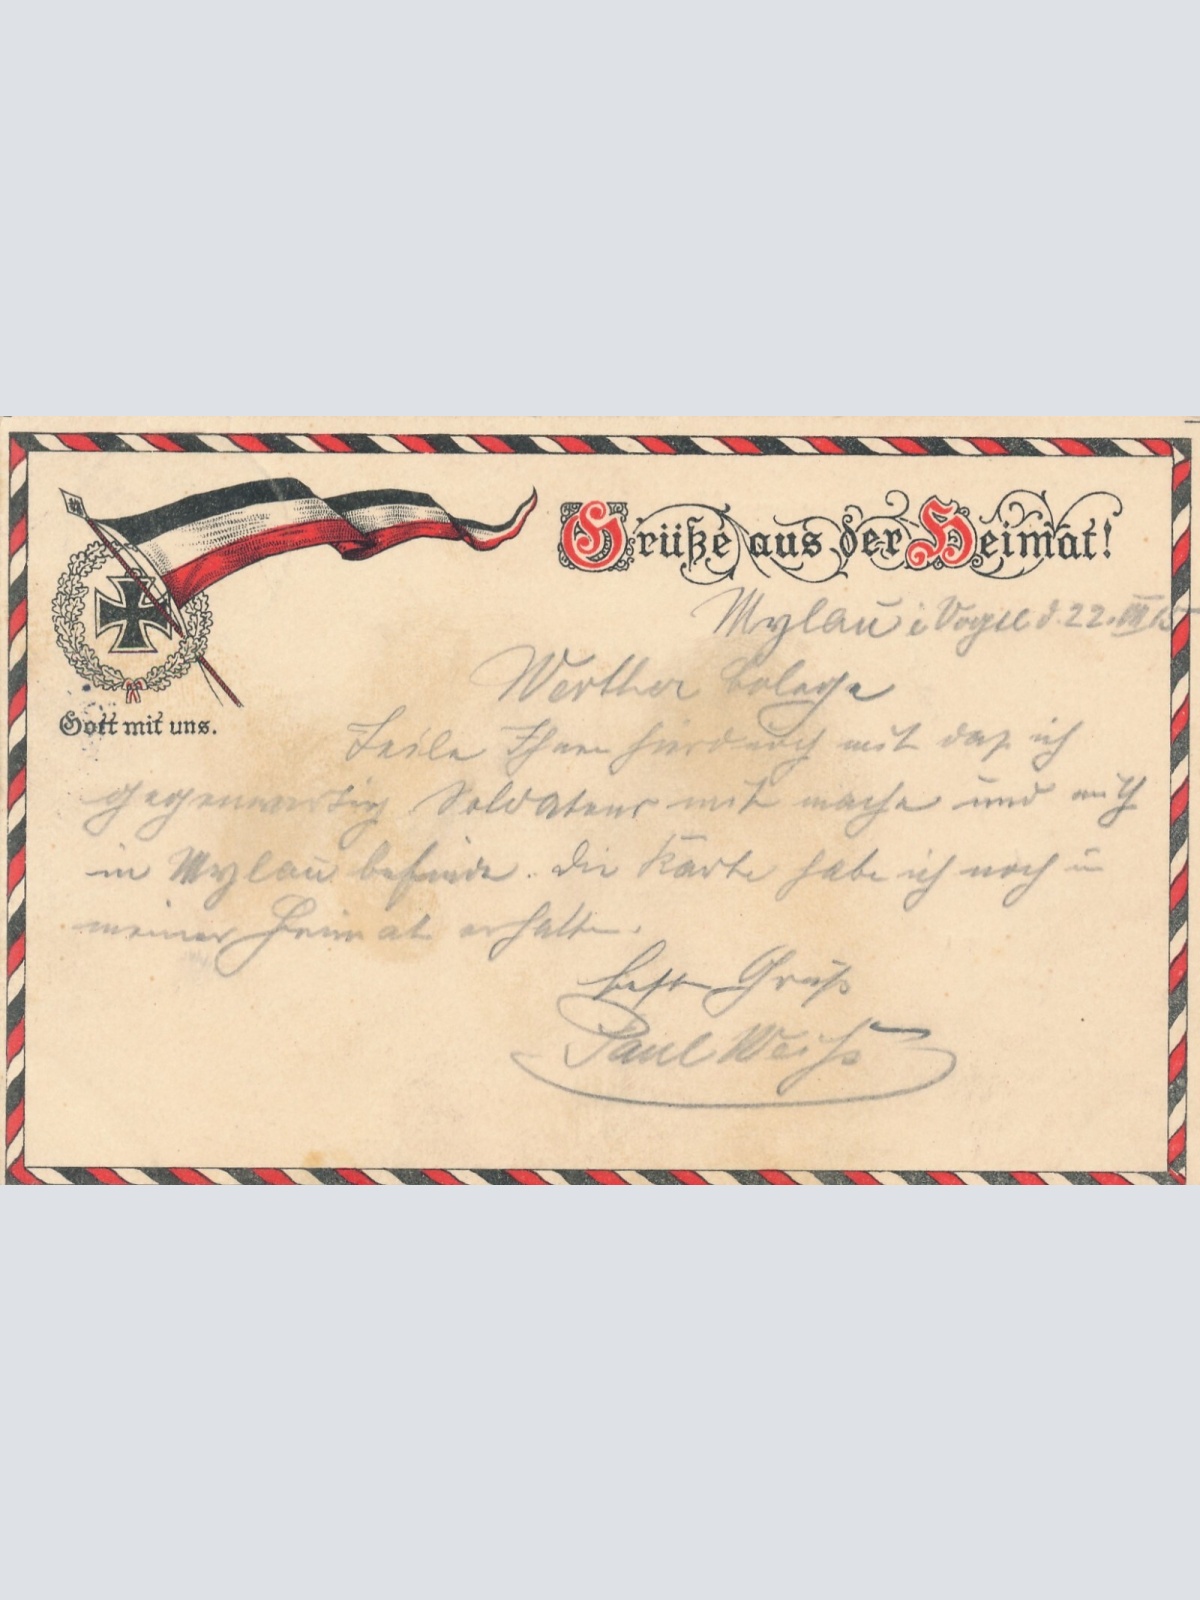 Grüße aus der Heimat!
Gott mit uns.
Mylau i Vogtl d. 22. VII 15
Werther Colege
Teile Ihnen hierdurch mit daß ich
gegenwertig Soldatens mit mache und mich
in Mylau befinde. Die Karte habe ich noch in
meiner Heimat erhalten.
Besten Gruß
Paul Weiß